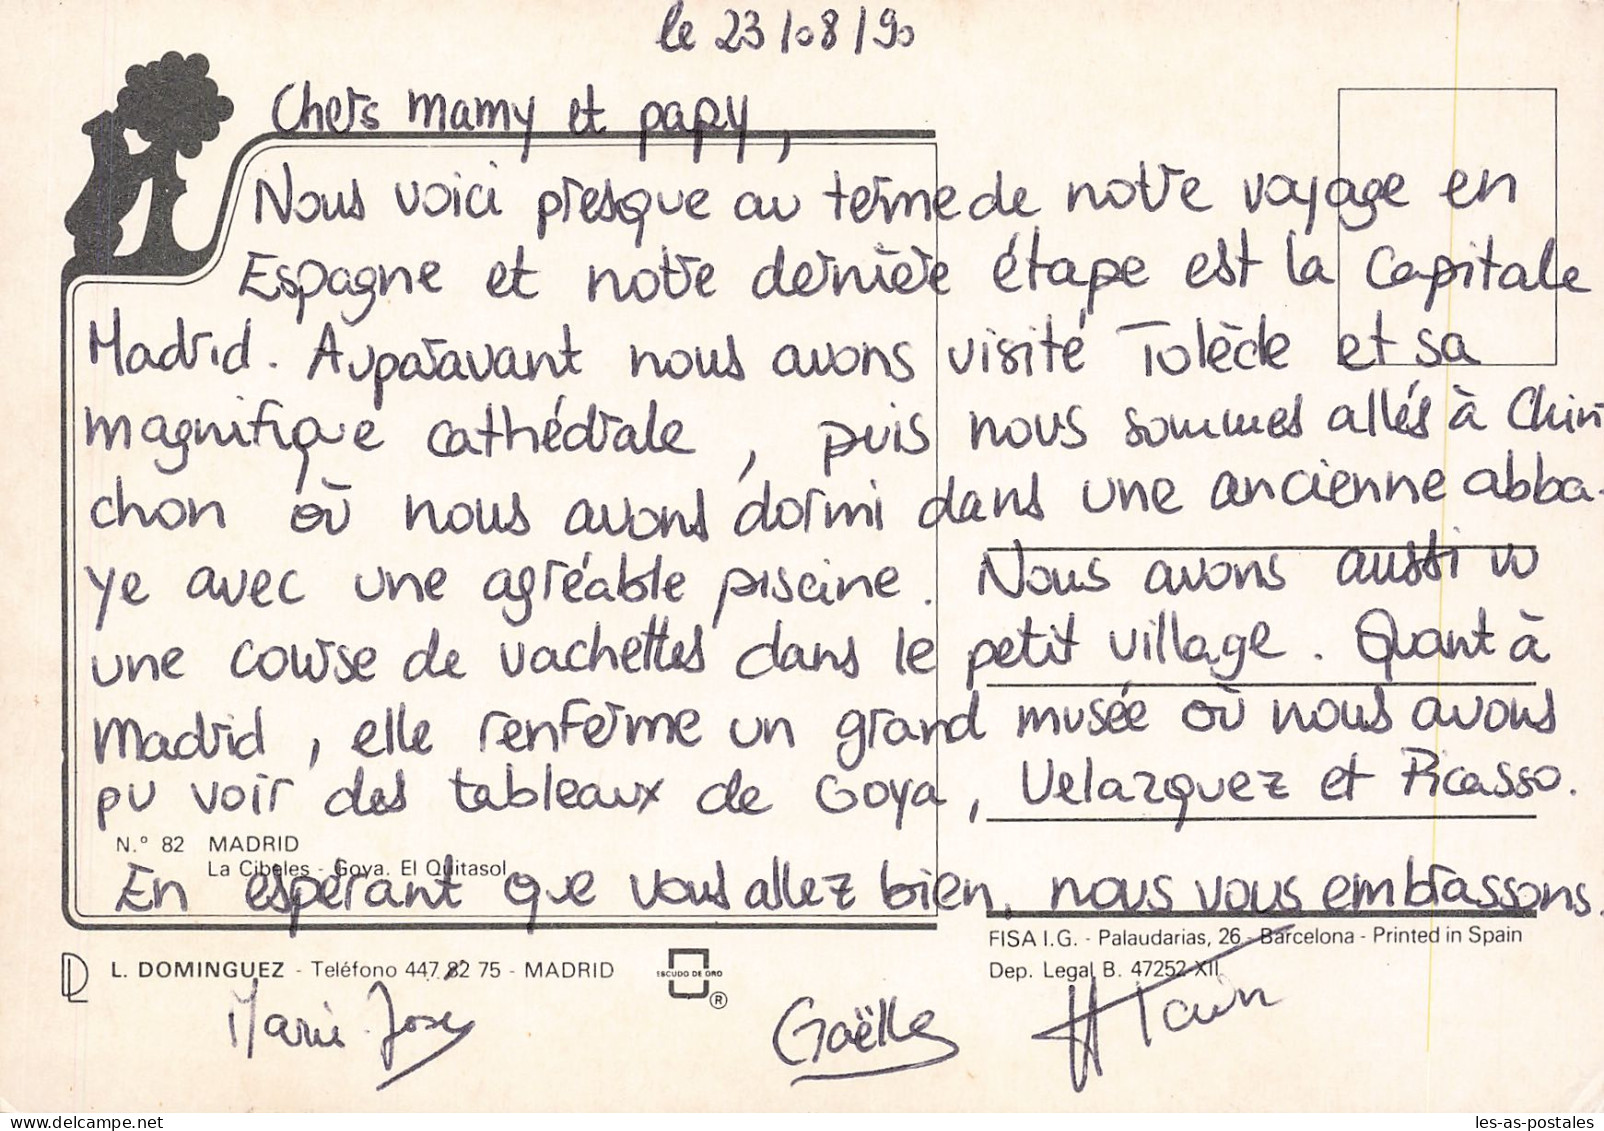 le 23/08/90
Chers mamy et papy,
Nous voici presque au terme de notre voyage en
Espagne et notre dernière étape est la Capitale
Madrid. Auparavant nous avons visité Tolède et sa
magnifique cathédrale, puis nous sommes allés à Chin
chon où nous avons dormi dans une ancienne abba-
ye avec une agréable piscine. Nous avons aussi vu
une course de vachettes dans le petit village. Quant à
Madrid, elle renferme un grand musée où nous avons
pu voir des tableaux de Goya, Velazquez et Picasso.
N.° 82 MADRID
La Cibeles - Goya. El Quitasol
En espérant que vous allez bien, nous vous embrassons.
FISA I.G. - Palaudarias, 26 - Barcelona - Printed in Spain
L. DOMINGUEZ - Teléfono 447 82 75 - MADRID
ESCUDO DE ORO
®
Dep. Legal B. 47252-XII
Marie-José
Gaëlle
les-as-postales